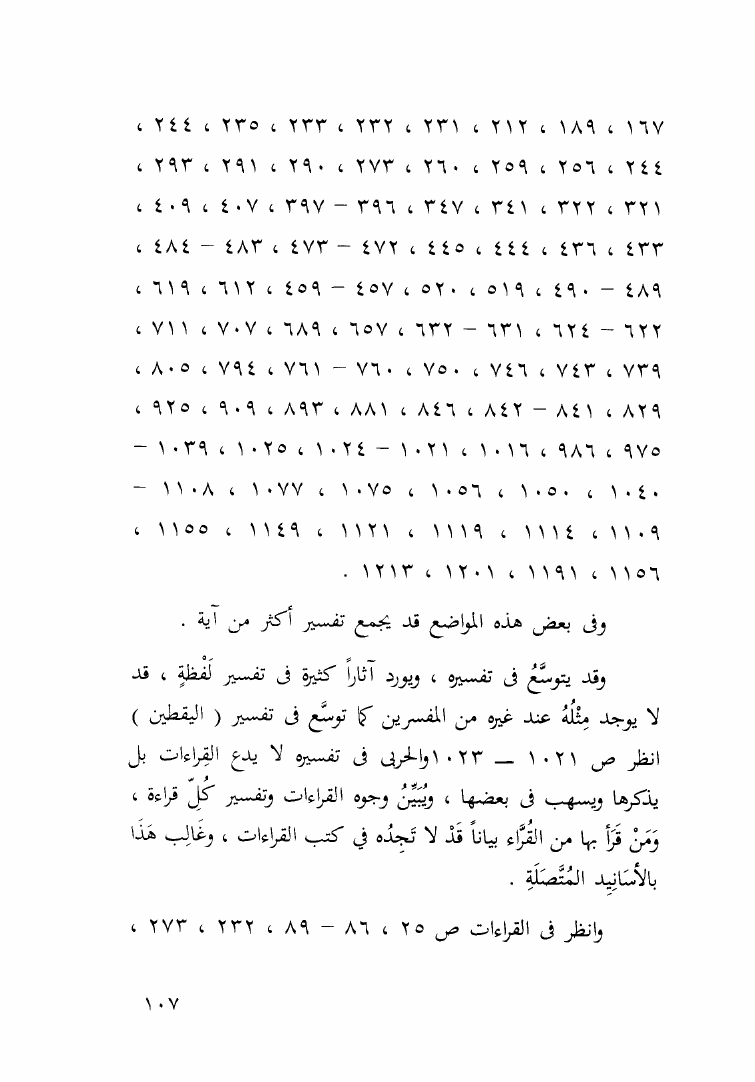 ١٦٧ ، ١٨٩ ، ٢١٢ ، ٢٣١ ، ٢٣٢ ، ٢٣٣ ، ٢٣٥ ، ٢٤٤ ،
٢٤٤ ، ٢٥٦ ، ٢٥٩ ، ٢٦٠ ، ٢٧٣ ، ٢٩٠ ، ٢٩١ ، ٢٩٣ ،
٣٢١ ، ٣٢٢ ، ٣٤١ ، ٣٤٧ ، ٣٩٦ – ٣٩٧ ، ٤٠٧ ، ٤٠٩ ،
٤٣٣ ، ٤٣٦ ، ٤٤٤ ، ٤٤٥ ، ٤٧٢ – ٤٧٣ ، ٤٨٣ – ٤٨٤ ،
٤٨٩ – ٤٩٠ ، ٥١٩ ، ٥٢٠ ، ٤٥٧ – ٤٥٩ ، ٦١٢ ، ٦١٩ ،
٦٢٢ – ٦٢٤ ، ٦٣١ – ٦٣٢ ، ٦٥٧ ، ٦٨٩ ، ٧٠٧ ، ٧١١ ،
٧٣٩ ، ٧٤٣ ، ٧٤٦ ، ٧٥٠ ، ٧٦٠ – ٧٦١ ، ٧٩٤ ، ٨٠٥ ،
٨٢٩ ، ٨٤١ – ٨٤٢ ، ٨٤٦ ، ٨٨١ ، ٨٩٣ ، ٩٠٩ ، ٩٢٥ ،
٩٧٥ ، ٩٨٦ ، ١٠١٦ ، ١٠٢١ – ١٠٢٤ ، ١٠٢٥ ، ١٠٣٩ –
١٠٤٠ ، ١٠٥٠ ، ١٠٥٦ ، ١٠٧٥ ، ١٠٧٧ ، ١١٠٨ –
١١٠٩ ، ١١١٤ ، ١١١٩ ، ١١٢١ ، ١١٤٩ ، ١١٥٥ ،
١١٥٦ ، ١١٩١ ، ١٢٠١ ، ١٢١٣ .
وفى بعض هذه المواضع قد يجمع تفسير أكثر من آية .
وقد يتوسَّعُ فى تفسيره ، ويورد آثاراً كثيرة فى تفسير لَفْظةٍ ، قد
لا يوجد مِثْلُهُ عند غيره من المفسرين كما توسَّع فى تفسير ( اليقطين )
انظر ص ١٠٢١ — ١٠٢٣والحربى فى تفسيره لا يدع القِراءات بل
يذكرها ويسهب فى بعضها ، ويُبَيِّنُ وجوه القراءات وتفسير كُلِّ قراءة ،
وَمَنْ قَرَأ بها من القُرَّاء بياناً قَدْ لا تَجِدُه في كتب القراءات ، وغَالِب هَذَا
بالأسَانِيد المُتَّصَلَةِ .
وانظر فى القراءات ص ٢٥ ، ٨٦ – ٨٩ ، ٢٣٢ ، ٢٧٣ ،
١٠٧